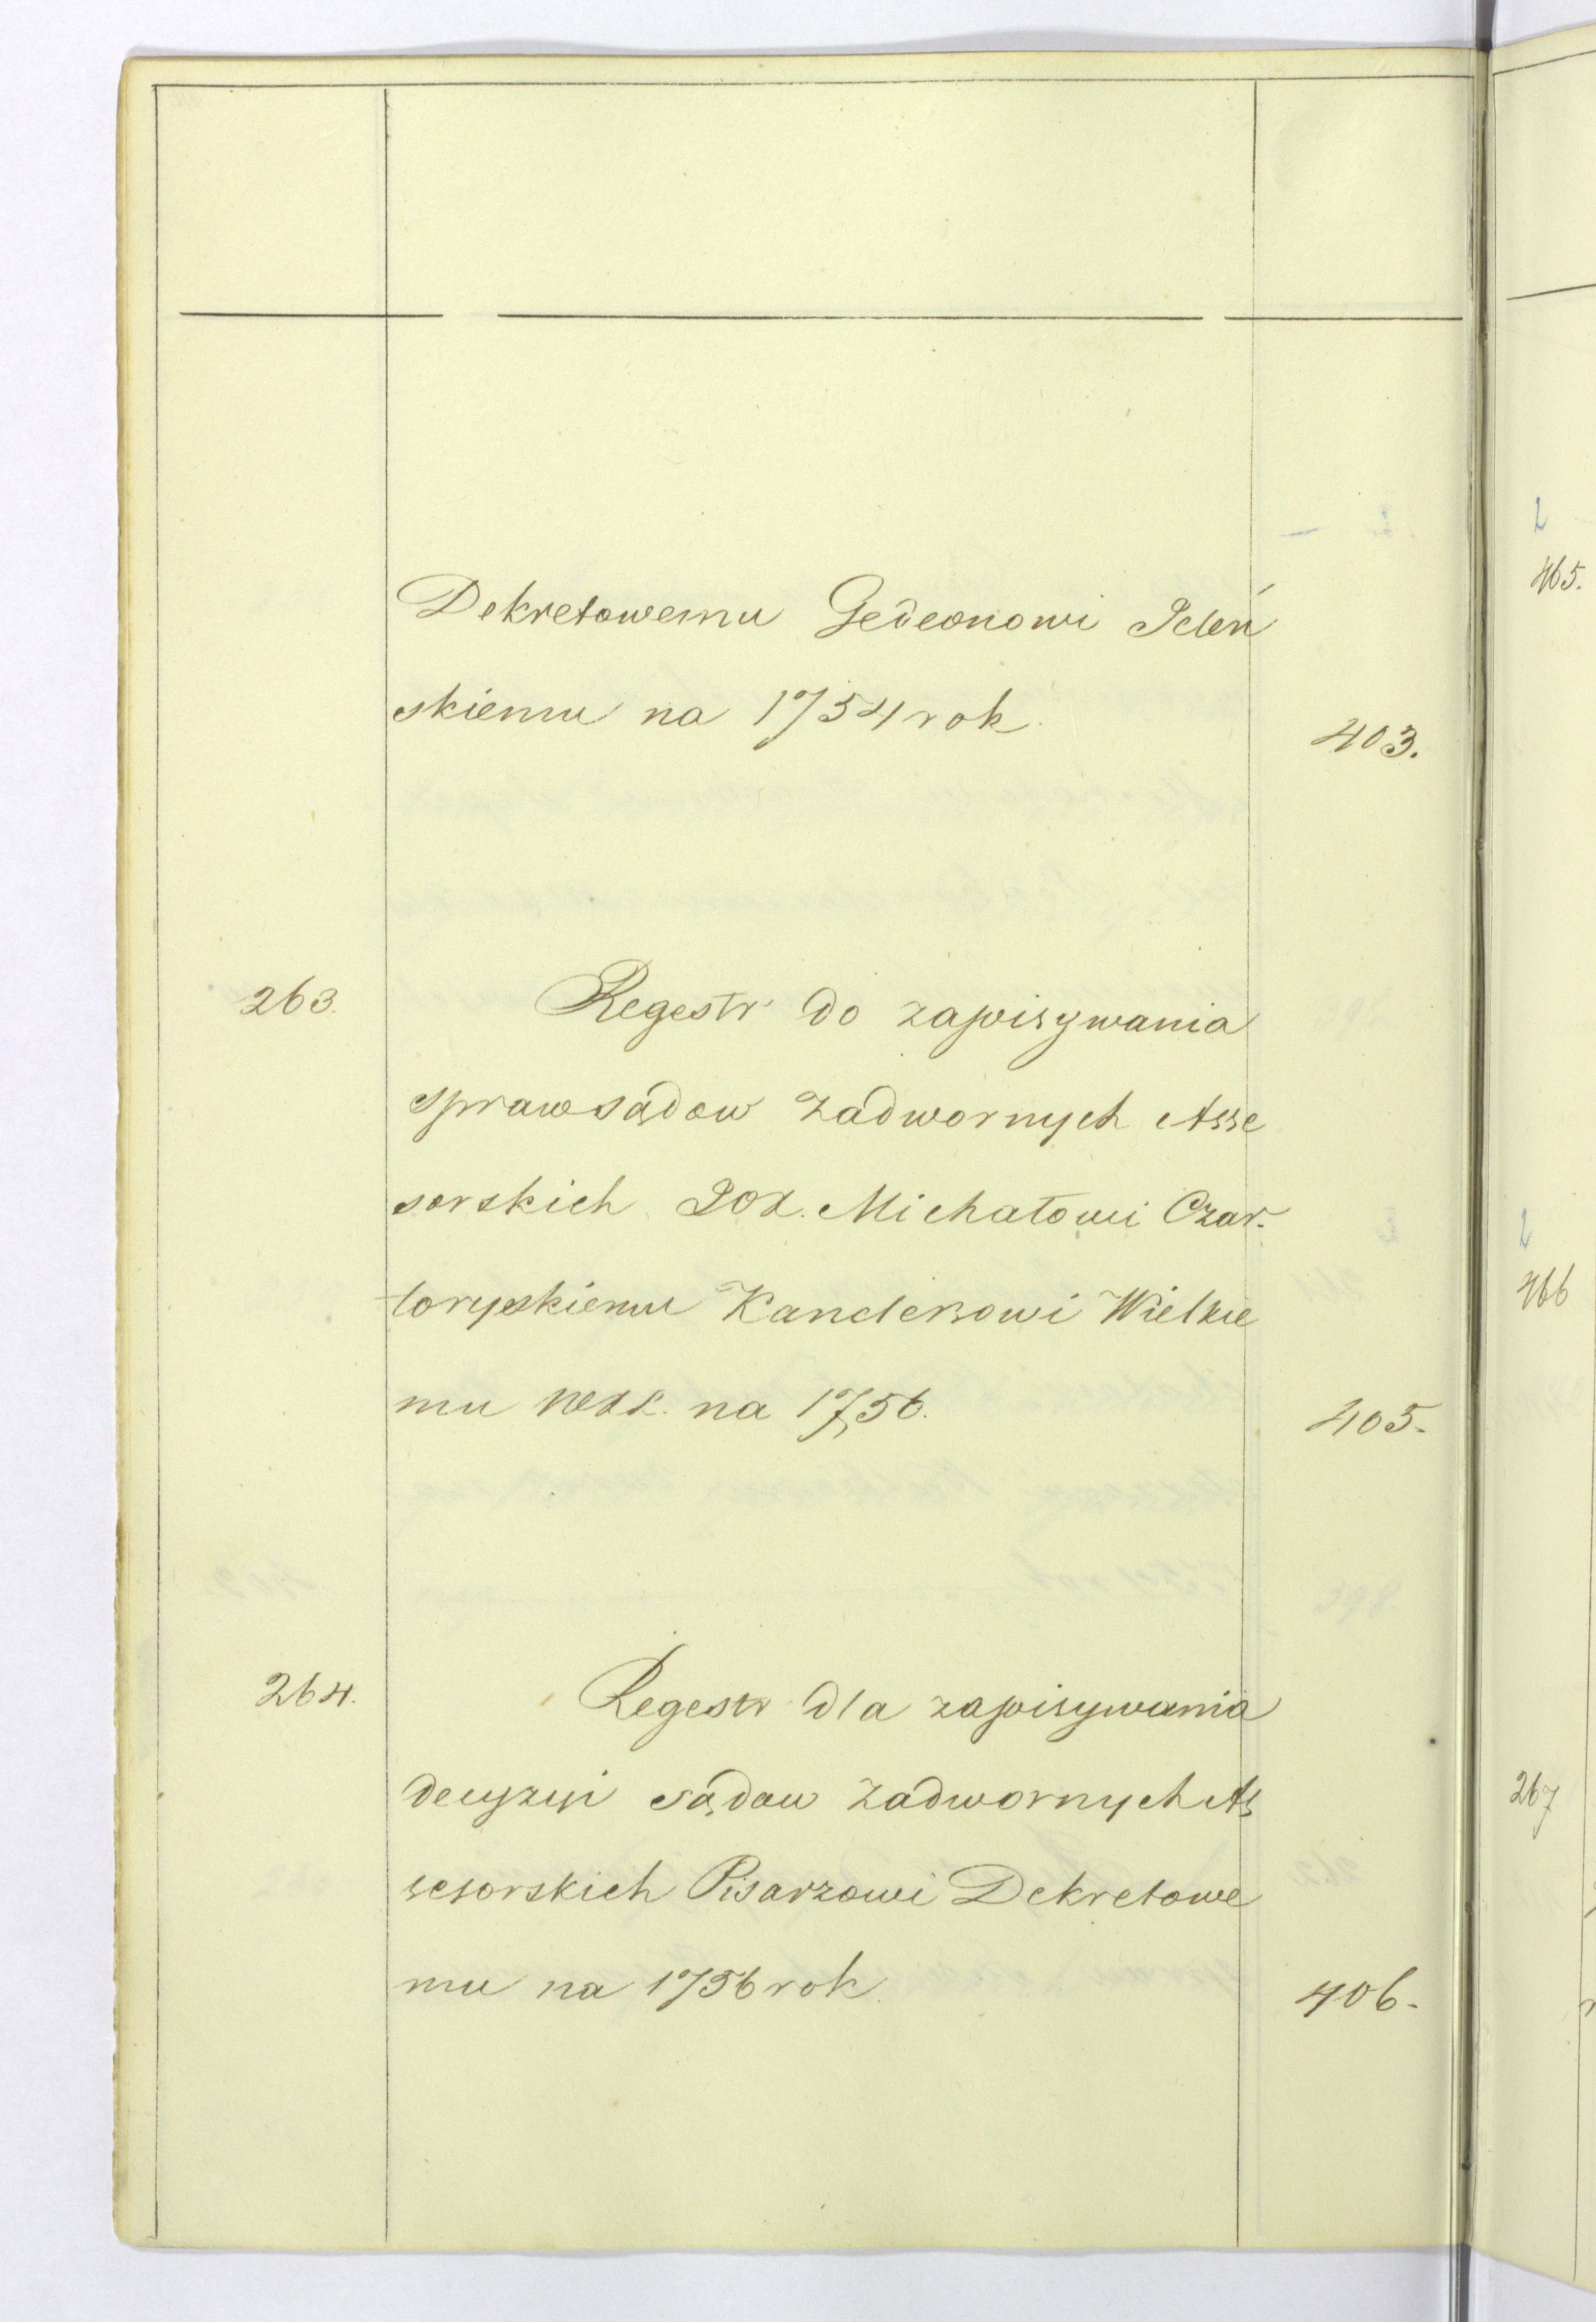 Dekretowemu Gedeonowi Jeleń
skiemu na 1754 rok.
403.
263. Regestr do zapisywania
spraw sądow zadwornych Asse
sorskich JOX. Michałowi Czar-
toryskiemu Kanclerzowi Wielkie
mu WXL. na 1756.
405.
264. Regestr dla zapisywania
decyzyi sądow zadwornych As
sesorskich Pisarzowi Dekretowe
mu na 1756 rok.
406.
465.
466
267